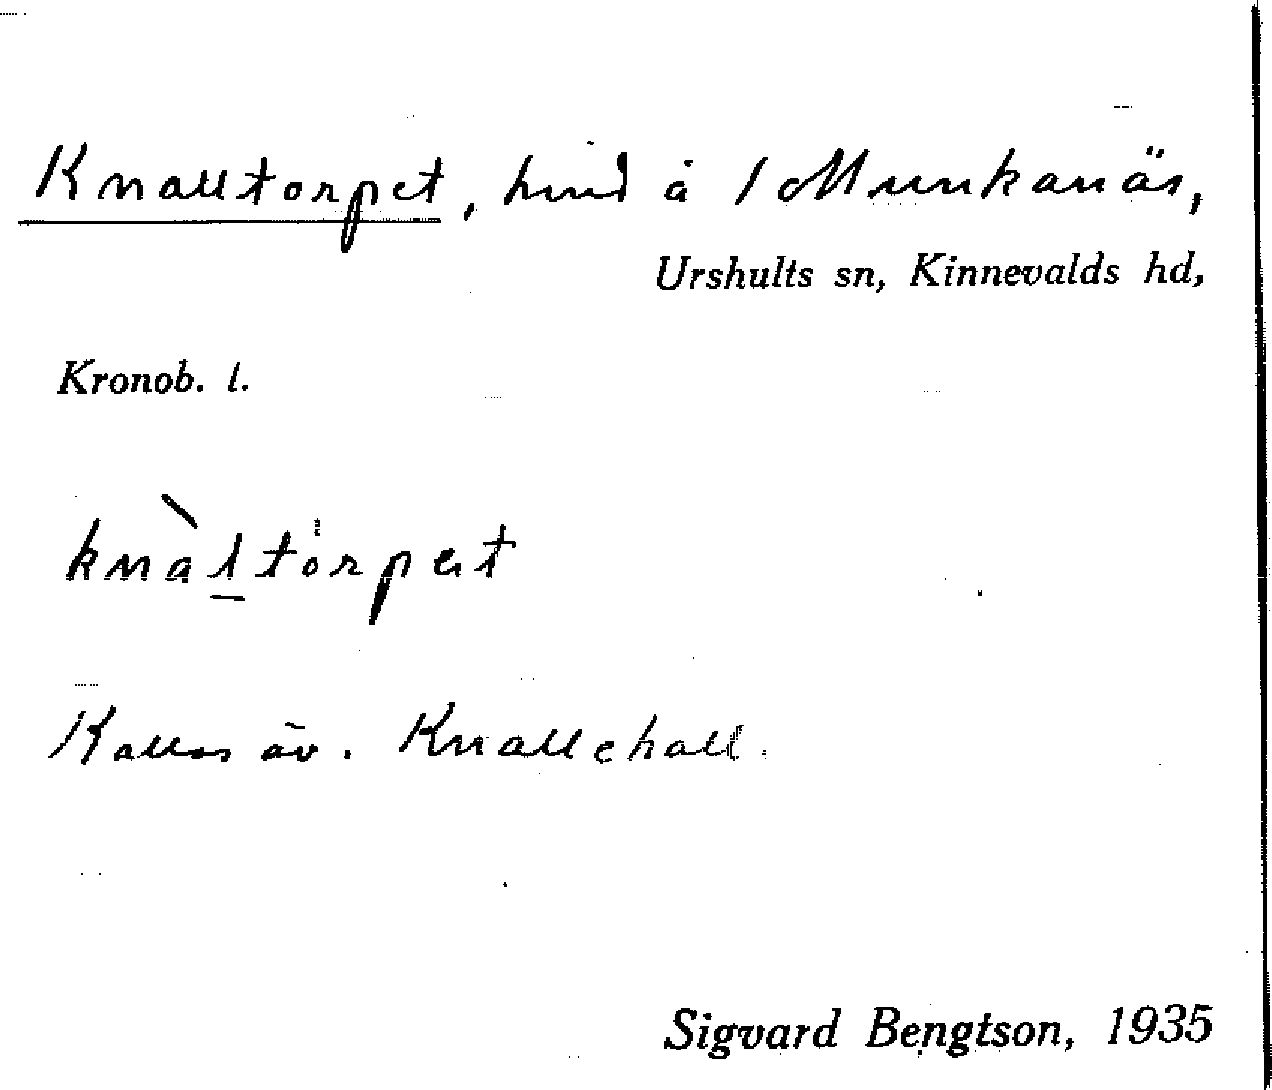 Knalltorpet, hmd å 1 Munkanäs,
Urshults sn, Kinnevalds hd,
Kronob. l.
knàltörpet
Kallas äv. Knallehall.
Sigvard Bengtson, 1935